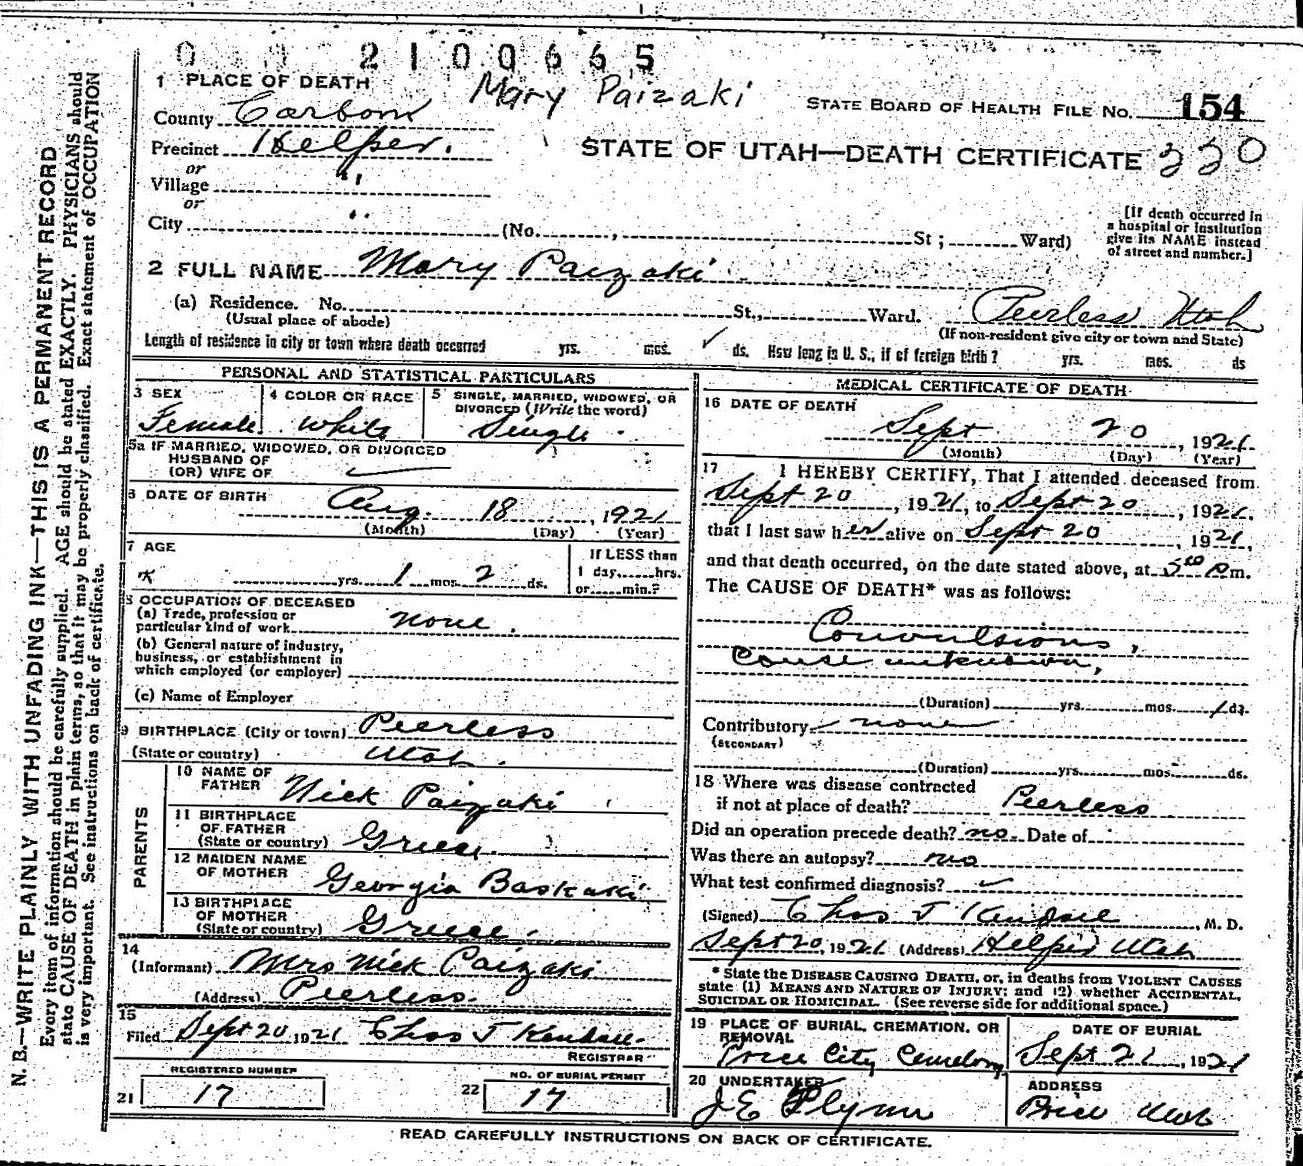 0 0 2100665
1 PLACE OF DEATH Mary Paizaki
STATE BOARD OF HEALTH FILE No. 154
County Carbon
Precinct Helper.
STATE OF UTAH—DEATH CERTIFICATE 330
or
Village "
or
City " (No. , St ; Ward)
[If death occurred in
a hospital or institution
give its NAME instead
of street and number.]
2 FULL NAME Mary Paizaki
(a) Residence. No. St., Ward. Peerless Utah
(Usual place of abode) (If non-resident give city or town and State)
Length of residence in city or town where death occurred yrs. mos. ✓ ds. How long in U. S., if of foreign birth? yrs. mos. ds
PERSONAL AND STATISTICAL PARTICULARS
3 SEX Female
4 COLOR OR RACE White
5 SINGLE, MARRIED, WIDOWED, OR
DIVORCED (Write the word)
Single
5a IF MARRIED, WIDOWED, OR DIVORCED
HUSBAND OF
(OR) WIFE OF
6 DATE OF BIRTH Aug. 18, 1921
(Month) (Day) (Year)
7 AGE yrs. 1 mos. 2 ds.
If LESS than
1 day, hrs.
or min.?
8 OCCUPATION OF DECEASED
(a) Trade, profession or
particular kind of work none.
(b) General nature of industry,
business, or establishment in
which employed (or employer)
(c) Name of Employer
9 BIRTHPLACE (City or town) Peerless
(State or country) Utah.
PARENTS
10 NAME OF
FATHER Nick Paizaki
11 BIRTHPLACE
OF FATHER
(State or country) Greece.
12 MAIDEN NAME
OF MOTHER Georgia Baskaki
13 BIRTHPLACE
OF MOTHER
(State or country) Greece.
14
(Informant) Mrs Nick Paizaki
(Address) Peerless.
15
Filed Sept 20 1921 Chas T Kendall
REGISTRAR
REGISTERED NUMBER
21 17
NO. OF BURIAL PERMIT
22 17
MEDICAL CERTIFICATE OF DEATH
16 DATE OF DEATH
Sept 20, 1921
(Month) (Day) (Year)
17 I HEREBY CERTIFY, That I attended deceased from
Sept 20, 1921, to Sept 20, 1921.
that I last saw her alive on Sept 20, 1921,
and that death occurred, on the date stated above, at 5 00 P m.
The CAUSE OF DEATH* was as follows:
Convulsions,
cause unknown,
(Duration) yrs. mos. 1 ds.
Contributory none
(SECONDARY)
(Duration) yrs. mos. ds.
18 Where was disease contracted
if not at place of death? Peerless
Did an operation precede death? no. Date of
Was there an autopsy? no
What test confirmed diagnosis? ✓
(Signed) Chas T Kendall, M. D.
Sept 20, 1921 (Address) Helper Utah
* State the DISEASE CAUSING DEATH, or, in deaths from VIOLENT CAUSES
state (1) MEANS AND NATURE OF INJURY; and (2) whether ACCIDENTAL,
SUICIDAL OR HOMICIDAL. (See reverse side for additional space.)
19 PLACE OF BURIAL, CREMATION, OR
REMOVAL
Price City Cemetery
DATE OF BURIAL
Sept 21, 1921
20 UNDERTAKER
J E Flynn
ADDRESS
Price Utah
READ CAREFULLY INSTRUCTIONS ON BACK OF CERTIFICATE.
N. B.—WRITE PLAINLY WITH UNFADING INK—THIS IS A PERMANENT RECORD
Every item of information should be carefully supplied. AGE should be stated EXACTLY. PHYSICIANS should
state CAUSE OF DEATH in plain terms, so that it may be properly classified. Exact statement of OCCUPATION
is very important. See instructions on back of certificate.